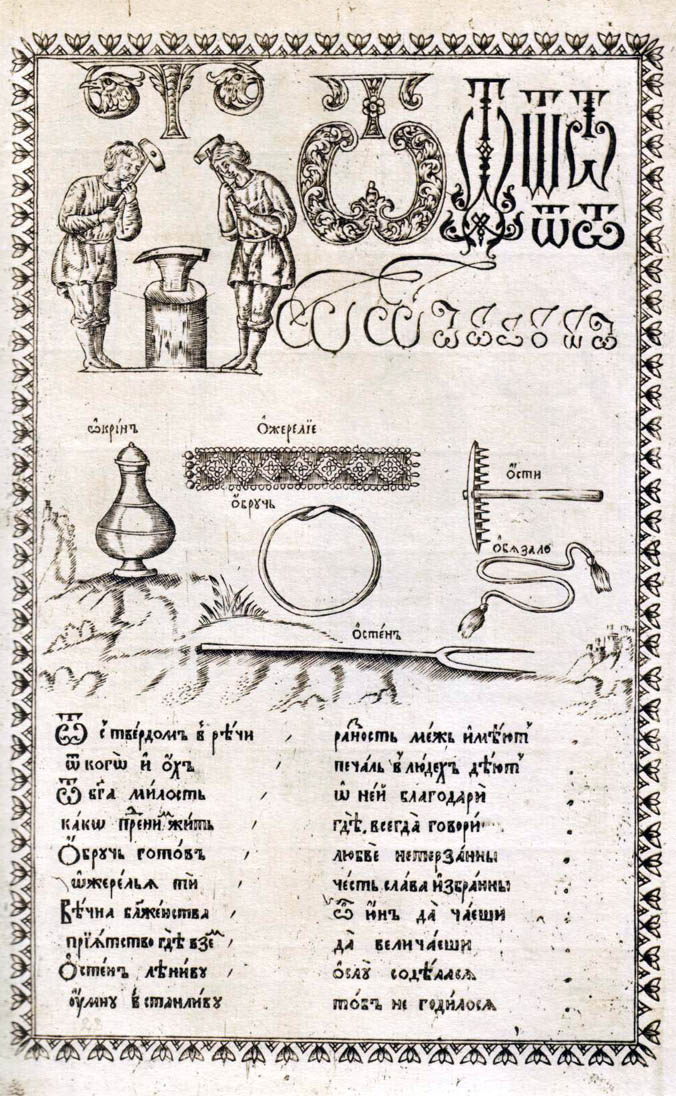 Ѿ Ѿ Ѿ Ѿ
Ѿ Ѿ
Ѡкрі́нъ
Ѻжерелїе
Ѻ҆сти
Ѻ҆бручь
Ѻ҆бѧзало
Ѻ҆сте́нъ
Ѿ с̾ тве́рдомъ в̾ рѣ́чи
ра́зность ме́жь и҆мѣ́ютъ
ѿ когѡ̀ и҆
печа́ль в̾ лю́дехъ дѣ́ютъ
Ѿ бг҃а ми́лость
ѡ не́й благодарѝ
ка́кѡ жи́ть
гдѣ̀, всегда̀ говорѝ
Ѻ҆бручь гото́въ
любвѐ нетерза́нны
ѡ҆жере́льѧ ти̑
че́сть сла́ва и҆збра́нны
Вѣ́чна бл҃же́нства
ѿ и҆́нъ да̀ ча́еши
прїѧ́тство гдѣ̀ взе́м
да̀ велича́еши
Ѻ҆сте́нъ лѣни́ву
ѻ҆слꙋ̀ содѣ́лалсѧ
оу҆́мнꙋ в̾станли́вꙋ
то́въ не годи́лосѧ